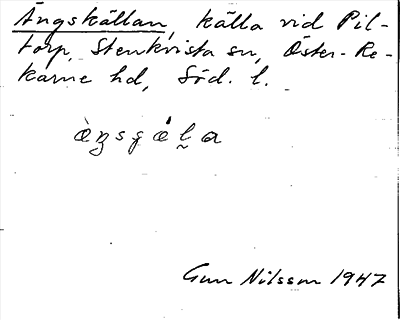 Ängskällan, källa vid Pil-
torp, Stenkvista sn, Öster-Re-
karne hd, Söd. l.
Gun Nilsson 1947